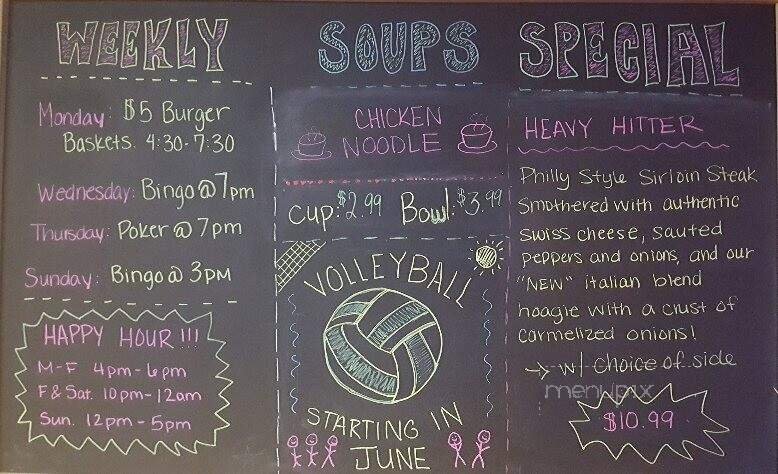 WEEKLY
Monday: $5 Burger
Baskets. 4:30-7:30
Wednesday: Bingo @ 7pm
Thursday: Poker @ 7pm
Sunday: Bingo @ 3pm
HAPPY HOUR!!!
M-F 4pm-6pm
F & Sat. 10pm-12am
Sun. 12pm-5pm
SOUPS
CHICKEN
NOODLE
Cup: $2.99 Bowl: $3.99
VOLLEYBALL
STARTING IN
JUNE
SPECIAL
HEAVY HITTER
Philly Style Sirloin Steak
Smothered with authentic
swiss cheese, sauted
peppers and onions, and our
"NEW" italian blend
hoagie with a crust of
carmelized onions!
→ w/ choice of side
menupix
$10.99